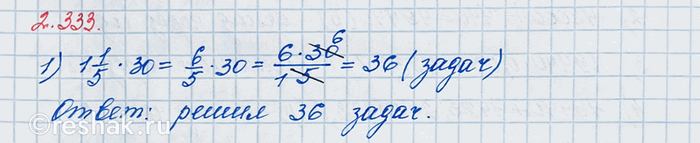 2.333.
1) 1 1/5 · 30 = 6/5 · 30 = (6 · 30 6)/(1 5) = 36 (задач)
Ответ: решил 36 задач.
©reshak.ru